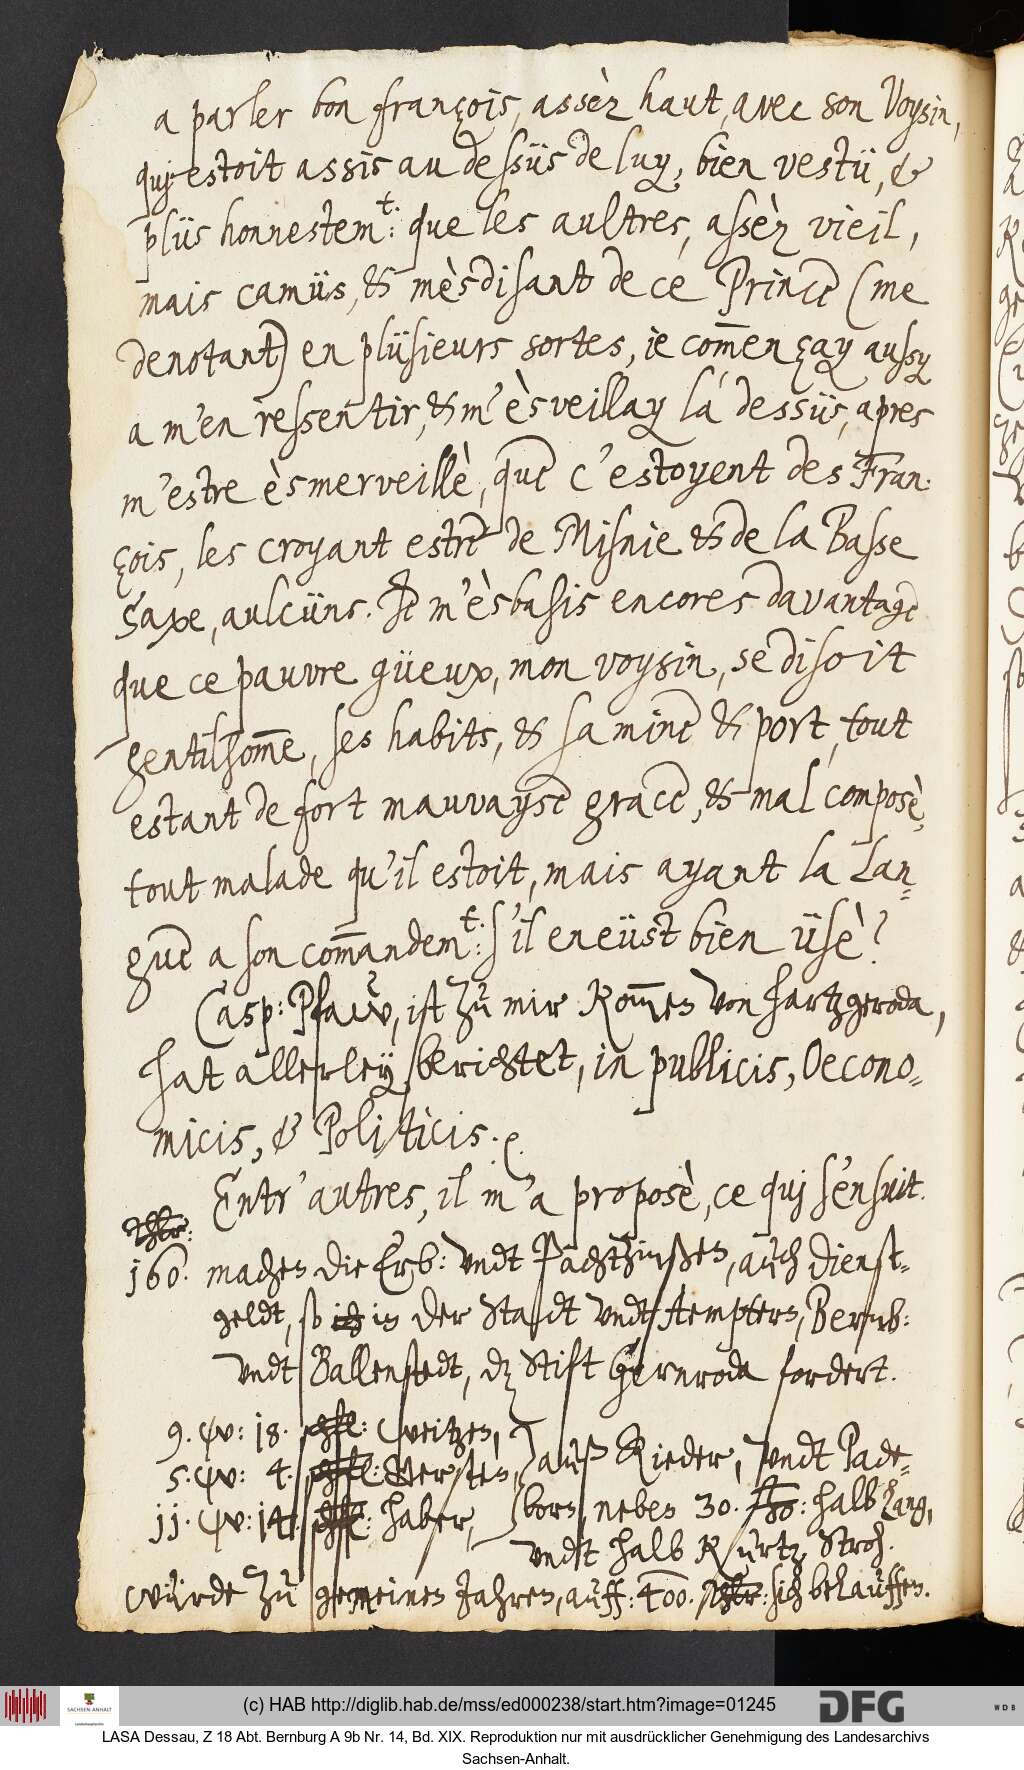 a parler bon françois, assèz haut, avec son Voysin,
quj estoit assis au dessüs de luy, bien vestü, &
plüs honnestem:t que les aultres, assèz vieil,
mais camüs, & mèsdisant de ce Prince (me
denotant) en plüsieurs sortes, je com̅ençay aussy
a m'en ressentir, & m'èsveillay la dessüs, apres
m'estre èsmerveillè, que c'estoyent des Fran-
çois, les croyant estre de Misnie & de la Basse
Saxe, aulcüns. Je m'èsbahis encores davantage
que ce pauvre güeux, mon voysin, se disoit
gentilhom̅e, ses habits, & sa mine & port, tout
estant de fort mauvayse grace, & mal composè,
tout malade qu'il estoit, mais ayant la Lan-
gue a son com̅andem:t s'il en eüst bien üsè?
Casp: Pfaw, ist zu mir kom̅en von Hartzgeroda,
hat allerley berichtet, in publicis, Oecono-
micis, & Politicis. e.
Entr'autres, il m'a proposè, ce quj s'ensuit.
Thlr:
160. machen die Erb: vndt Pachtzinßen, auch dienst-
geldt, so in der Stadt vndt Aemptern, Bernb:
vndt Ballenstedt, dz Stift Gernroda fordert.
9. W: 18. schfl: Weitzen,
5. W: 4. schfl: Gersten, auß Rieder, vndt Pade-
11. W: 14. schfl: Haber, born, neben 30. ßo: halb Lang,
vndt halb Kurtz Stroh.
würde zu gemeinen Jahren, auff: 400. Thlr: sich belauffen.
(c) HAB http://diglib.hab.de/mss/ed000238/start.htm?image=01245
SACHSEN-ANHALT
DFG
WDB
LASA Dessau, Z 18 Abt. Bernburg A 9b Nr. 14, Bd. XIX. Reproduktion nur mit ausdrücklicher Genehmigung des Landesarchivs
Sachsen-Anhalt.